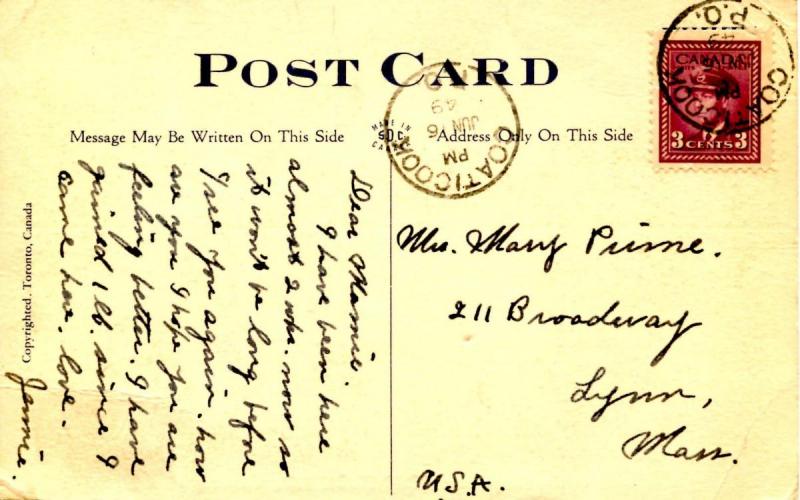 POST CARD
Message May Be Written On This Side
MADE IN
SDC
CANADA
Address Only On This Side
COATICOOK
PM
JUN 6
49
P.Q.
COATICOOK
PM
49
P.Q.
CANADA
3 CENTS 3
Copyrighted. Toronto, Canada
Dear Mamie.
I have been here
almost 2 wks. now so
it won't be long before
I see you again. how
are you I hope you are
feeling better. I have
gained 1 lb. since I
came here. love.
Jennie.
Mrs. Mary Prime.
211 Broadway
Lynn,
Mass.
U.S.A.